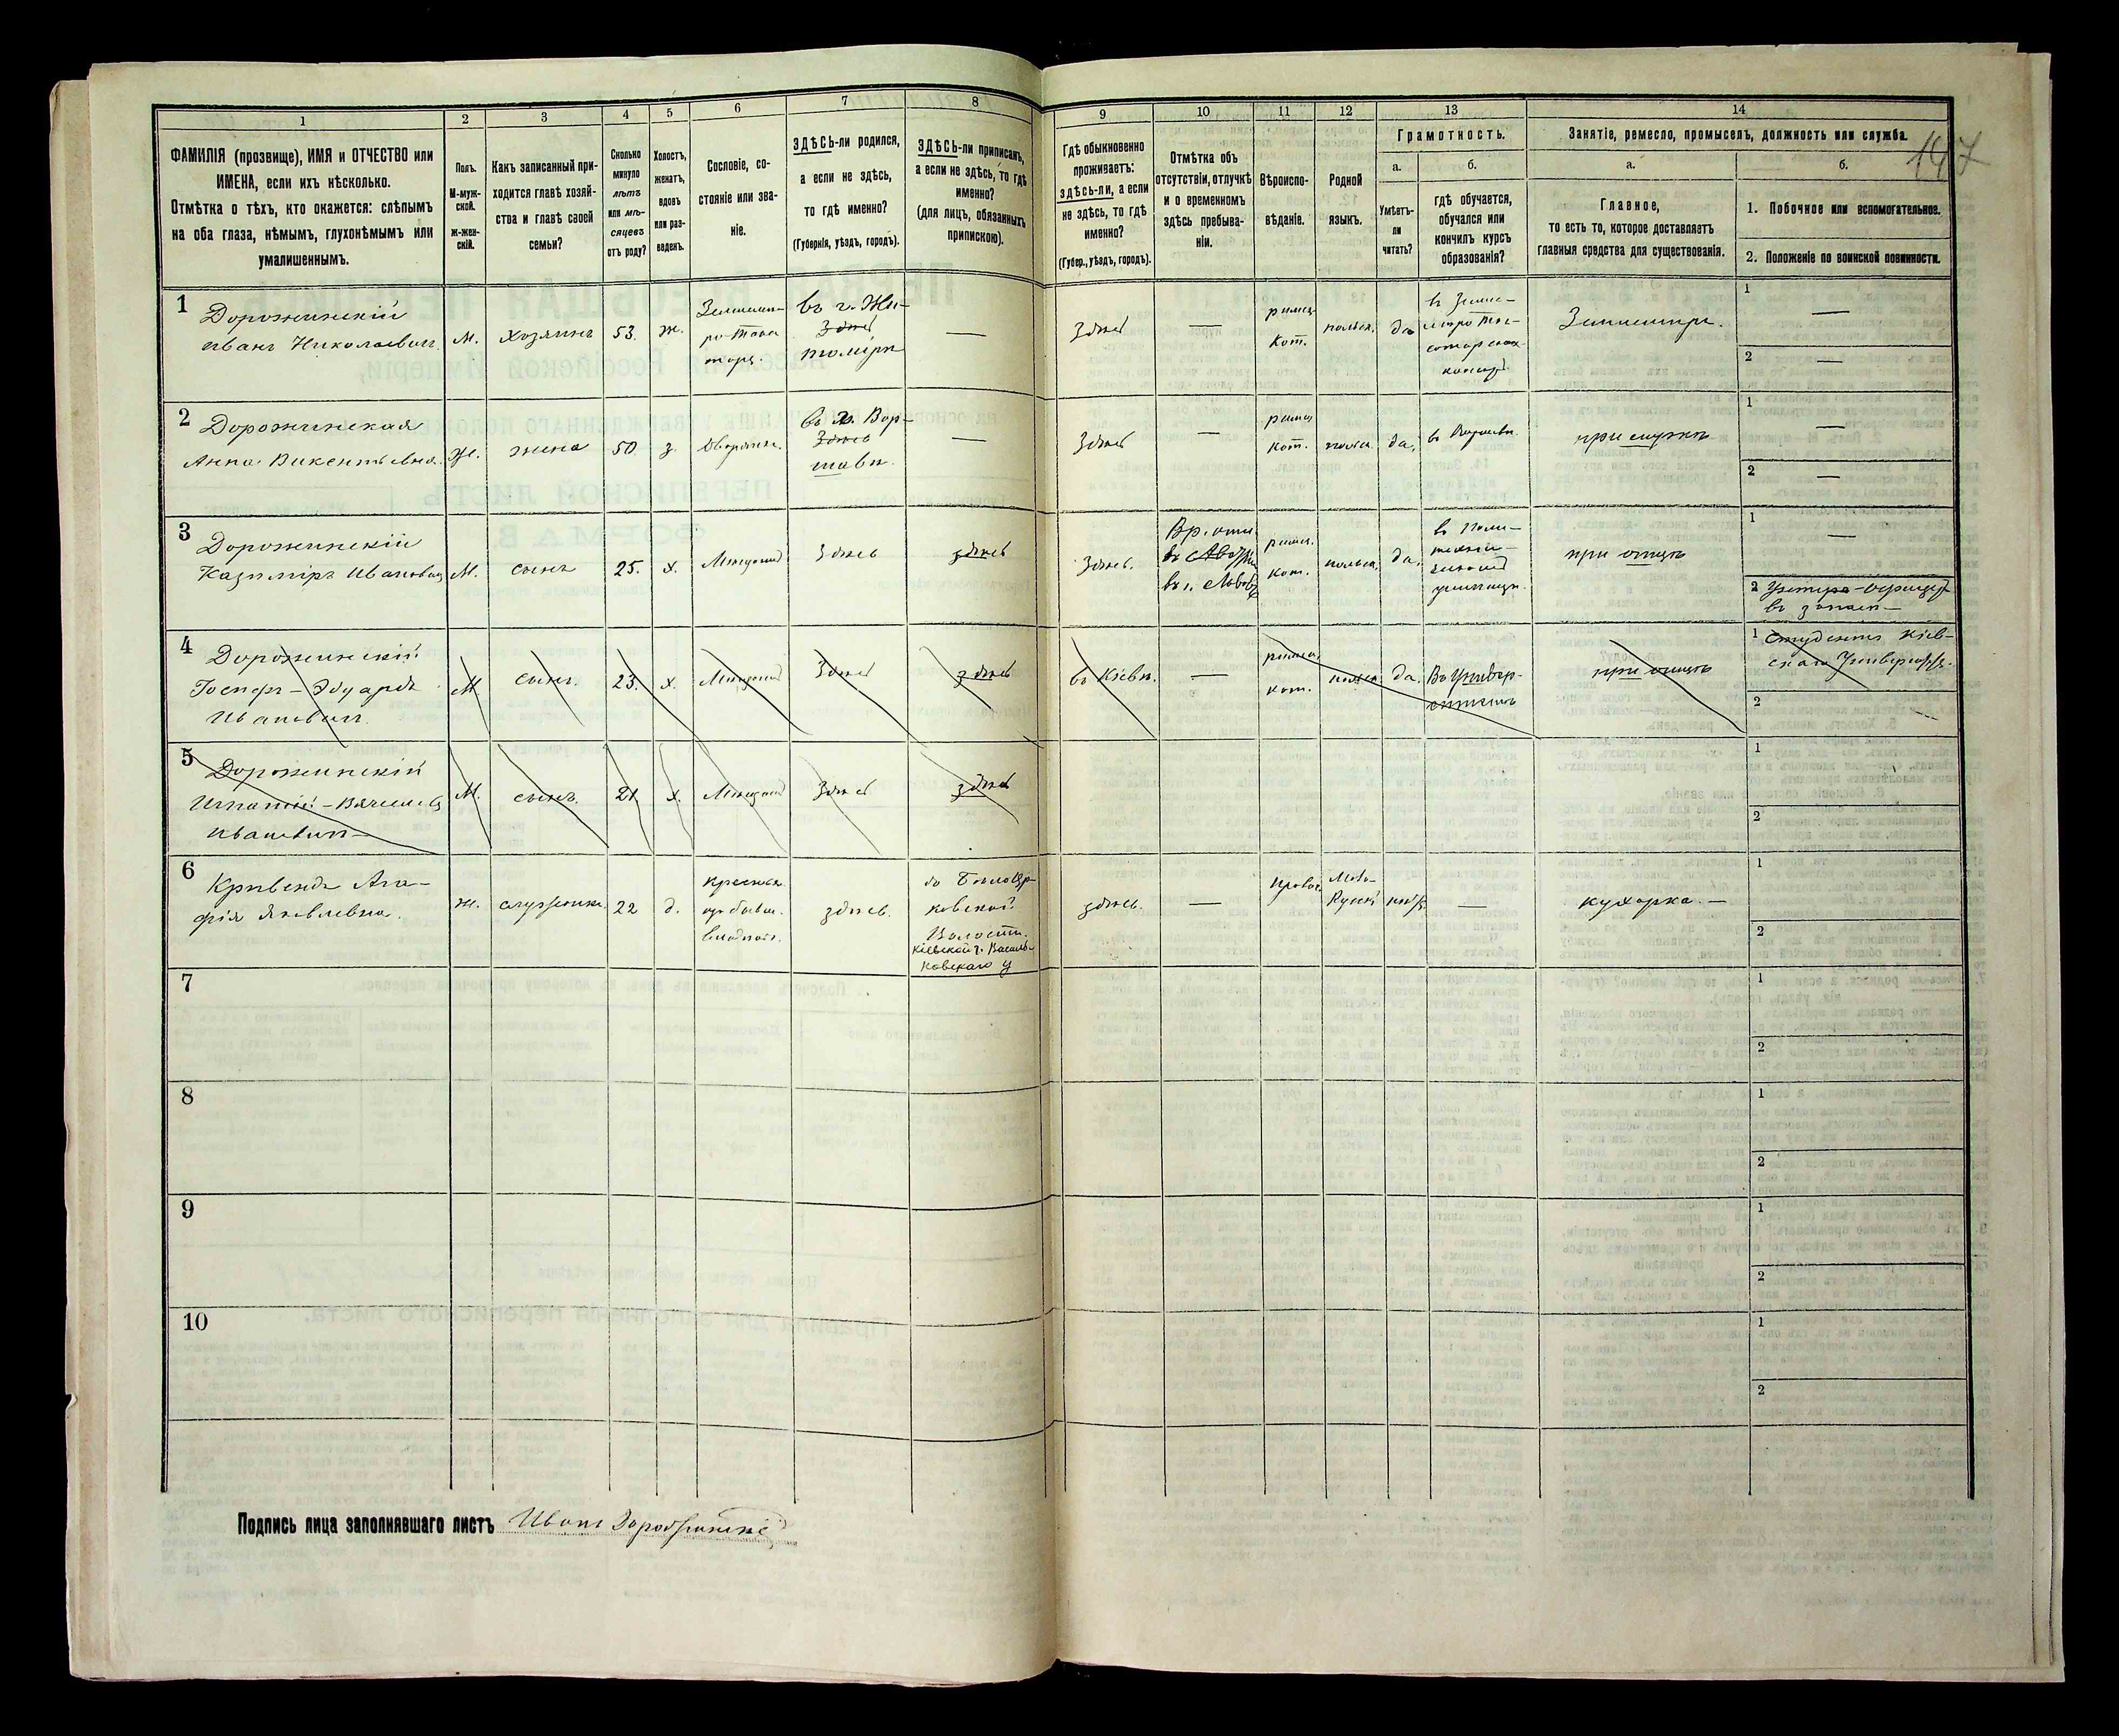 1
2
3
4
5
6
7
8
9
10
11
12
13
14
ФАМИЛІЯ (прозвище), ИМЯ и ОТЧЕСТВО или
ИМЕНА, если ихъ нѣсколько.
Отмѣтка о тѣхъ, кто окажется: слѣпымъ
на оба глаза, нѣмымъ, глухонѣмымъ или
умалишеннымъ.
Полъ.
М-муж-
ской.
ж-жен-
скій.
Какъ записанный при-
ходится главѣ хозяй-
ства и главѣ своей
семьи?
Сколько
минуло
лѣтъ
или мѣ-
сяцевъ
отъ роду?
Холостъ,
женатъ,
вдовъ
или раз-
веденъ.
Сословіе, со-
стояніе или зва-
ніе.
ЗДѢСЬ-ли родился,
а если не здѣсь,
то гдѣ именно?
(Губернія, уѣздъ, городъ).
ЗДѢСЬ-ли приписанъ,
а если не здѣсь, то гдѣ
именно?
(для лицъ, обязанныхъ
припискою).
Гдѣ обыкновенно
проживаетъ:
здѣсь-ли, а если
не здѣсь, то гдѣ
именно?
(Губер., уѣздъ, городъ).
Отмѣтка объ
отсутствіи, отлучкѣ
и о временномъ
здѣсь пребыва-
ніи.
Вѣроиспо-
вѣданіе.
Родной
языкъ.
Грамотность.
а.
Умѣетъ-
ли
читать?
б.
гдѣ обучается,
обучался или
кончилъ курсъ
образованія?
Занятіе, ремесло, промыселъ, должность или служба.
147
а.
Главное,
то есть то, которое доставляетъ
главныя средства для существованія.
б.
1. Побочное или вспомогательное.
2. Положеніе по воинской повинности.
1
Дорожинскій
Иванъ Николаевич
м.
хозяинъ
53.
ж.
въ г. Жи-
Здѣсь
томірѣ
—
Здѣсь
—
римск.
кат.
польск.
да
Землемѣръ.
1
—
2
—
2
Дорожинская
Анна Викентьевна.
ж.
жена
50
з.
Дворянка.
въ г. Вар-
Здѣсь
шавѣ.
—
Здѣсь
—
римск
кат.
польс.
да,
въ Варшавѣ.
при мужѣ
1
—
2
—
3
Дорожинскій
Казиміръ Ивановичъ
М.
сынъ
25.
х.
Здѣсь
здѣсь
Здѣсь.
римск.
кат.
польск.
да,
при отцѣ
1
—
2 Унтеръ-офицеръ
въ запасѣ
4
Дорожинскій
Іосифъ-Эдуардъ
Ивановичъ.
М
сынъ.
23.
х.
Здѣсь
здѣсь
въ Кіевѣ.
—
римск.
кат.
польск
да.
Въ Универ-
ситетѣ
при отцѣ
1 Студентъ Кіев-
скаго Университ.
2
5
Дорожинскій
Игнатій-Вячеславъ
Ивановичъ
М.
сынъ.
21
х.
Здѣсь
здѣсь
1
2
6
Кривенда Ага-
фія Яковлевна.
ж.
служанка
22
д.
здѣсь.
Волости.
Кіевской г. Василь-
ковскаго у
здѣсь.
—
Правос.
Мало-
Русскій
нѣтъ
—
кухарка. —
1
2
7
1
2
8
1
2
9
1
2
10
1
2
Подпись лица заполнявшаго листъ Иванъ Дорожинскій